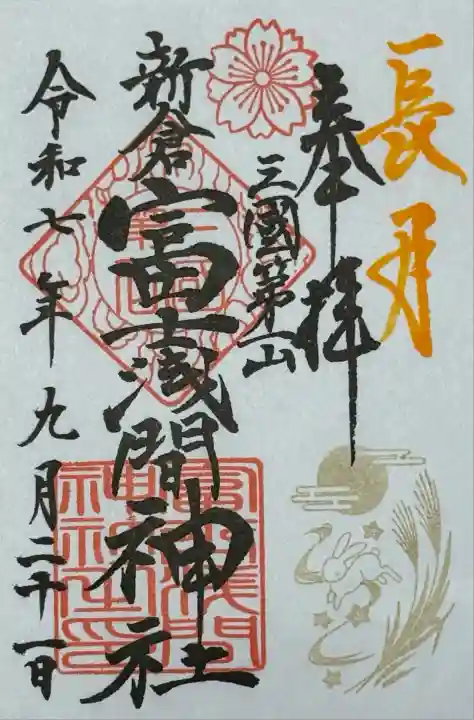 長月
奉拝
三國第一山
新倉
富士浅間神社
令和七年九月二十一日